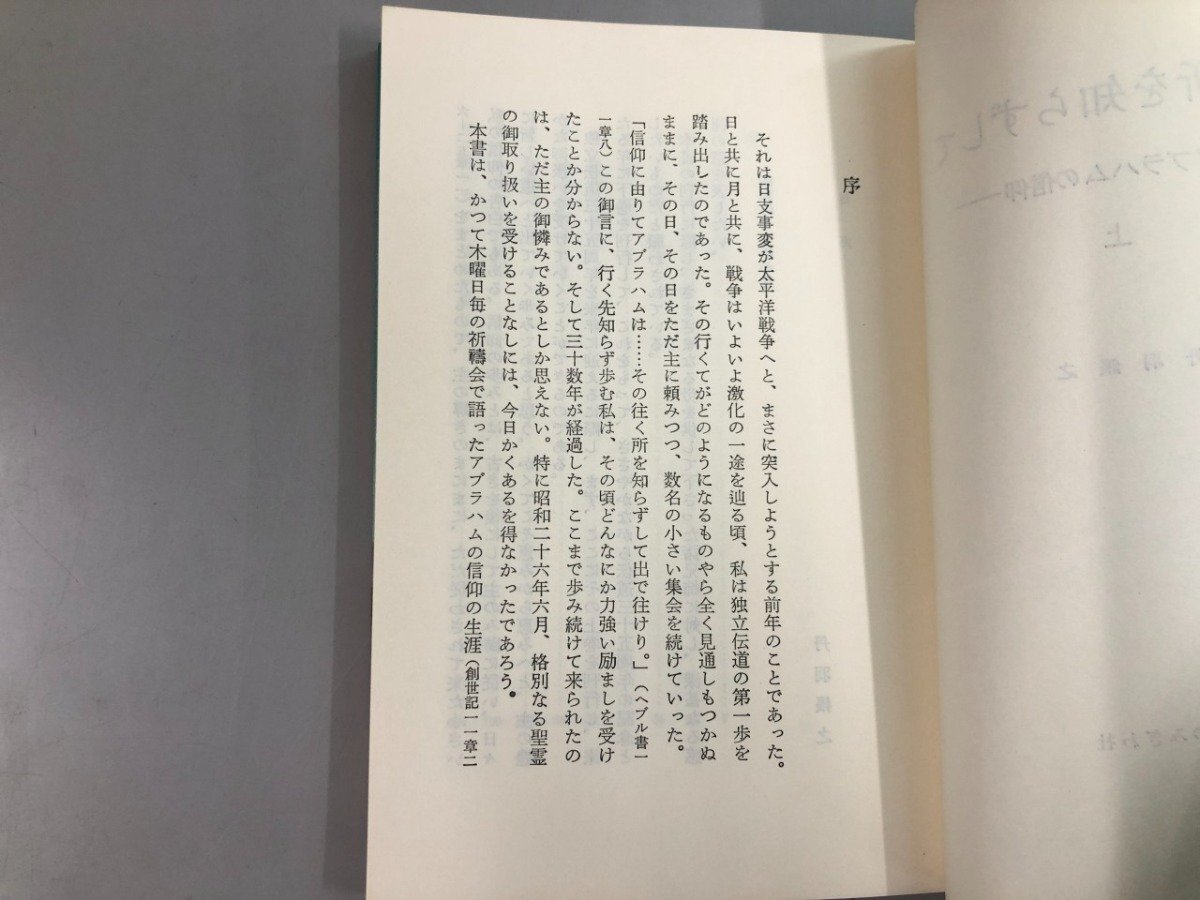 序
それは日支事変が太平洋戦争へと、まさに突入しようとする前年のことであった。
日と共に月と共に、戦争はいよいよ激化の一途を辿る頃、私は独立伝道の第一歩を
踏み出したのであった。その行くてがどのようになるものやら全く見通しもつかぬ
ままに、その日、その日をただ主に頼みつつ、数名の小さい集会を続けていった。
「信仰に由りてアブラハムは……その往く所を知らずして出で往けり。」（ヘブル書一
一章八）この御言に、行く先知らず歩む私は、その頃どんなにか力強い励ましを受け
たことか分からない。そして三十数年が経過した。ここまで歩み続けて来られたの
は、ただ主の御憐みであるとしか思えない。特に昭和二十六年六月、格別なる聖霊
の御取り扱いを受けることなしには、今日かくあるを得なかったであろう。
本書は、かつて木曜日毎の祈禱会で語ったアブラハムの信仰の生涯（創世記一一章二
所を知らずし
ブラハムの信仰—
上
之